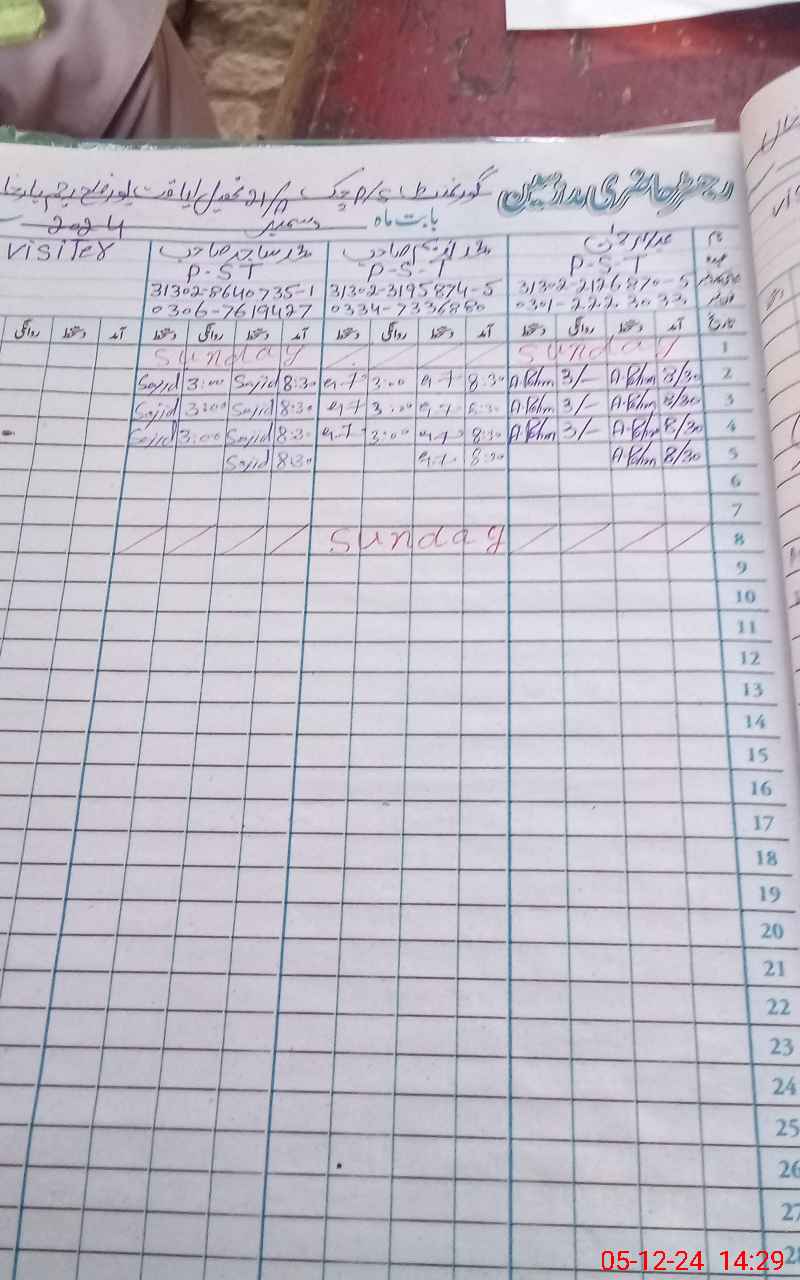 رجسٹر حاضری مدارسین گورنمنٹ P/S چک 21/A تحصیل لیاقت پور ضلع رحیم یار خان
بابت ماہ دسمبر 2024
نام عبدالرحمٰن محمد صاحب محمد ساجد صاحب VISITER
عہدہ P-S-T P-S-T P-S-T
31302-2126870-5 31302-3195874-5 31302-8640735-1
0301-222 3033 0334-7336880 0306-7619427
تاریخ آمد دستخط روانگی دستخط آمد دستخط روانگی دستخط آمد دستخط روانگی دستخط آمد دستخط روانگی
1 Sunday Sunday
2 8/30 3/- 8:30 3:00 8:30 Sajid 3:00 Sajid
3 8/30 3/- 8:30 3:00 8:30 Sajid 3:00 Sajid
4 8/30 3/- 8:30 3:00 8:30 Sajid 3:00 Sajid
5 8/30 8:30 8:30 Sajid
6
7
8 Sunday
9
10
11
12
13
14
15
16
17
18
19
20
21
22
23
24
25
26
27
28
05-12-24 14:29